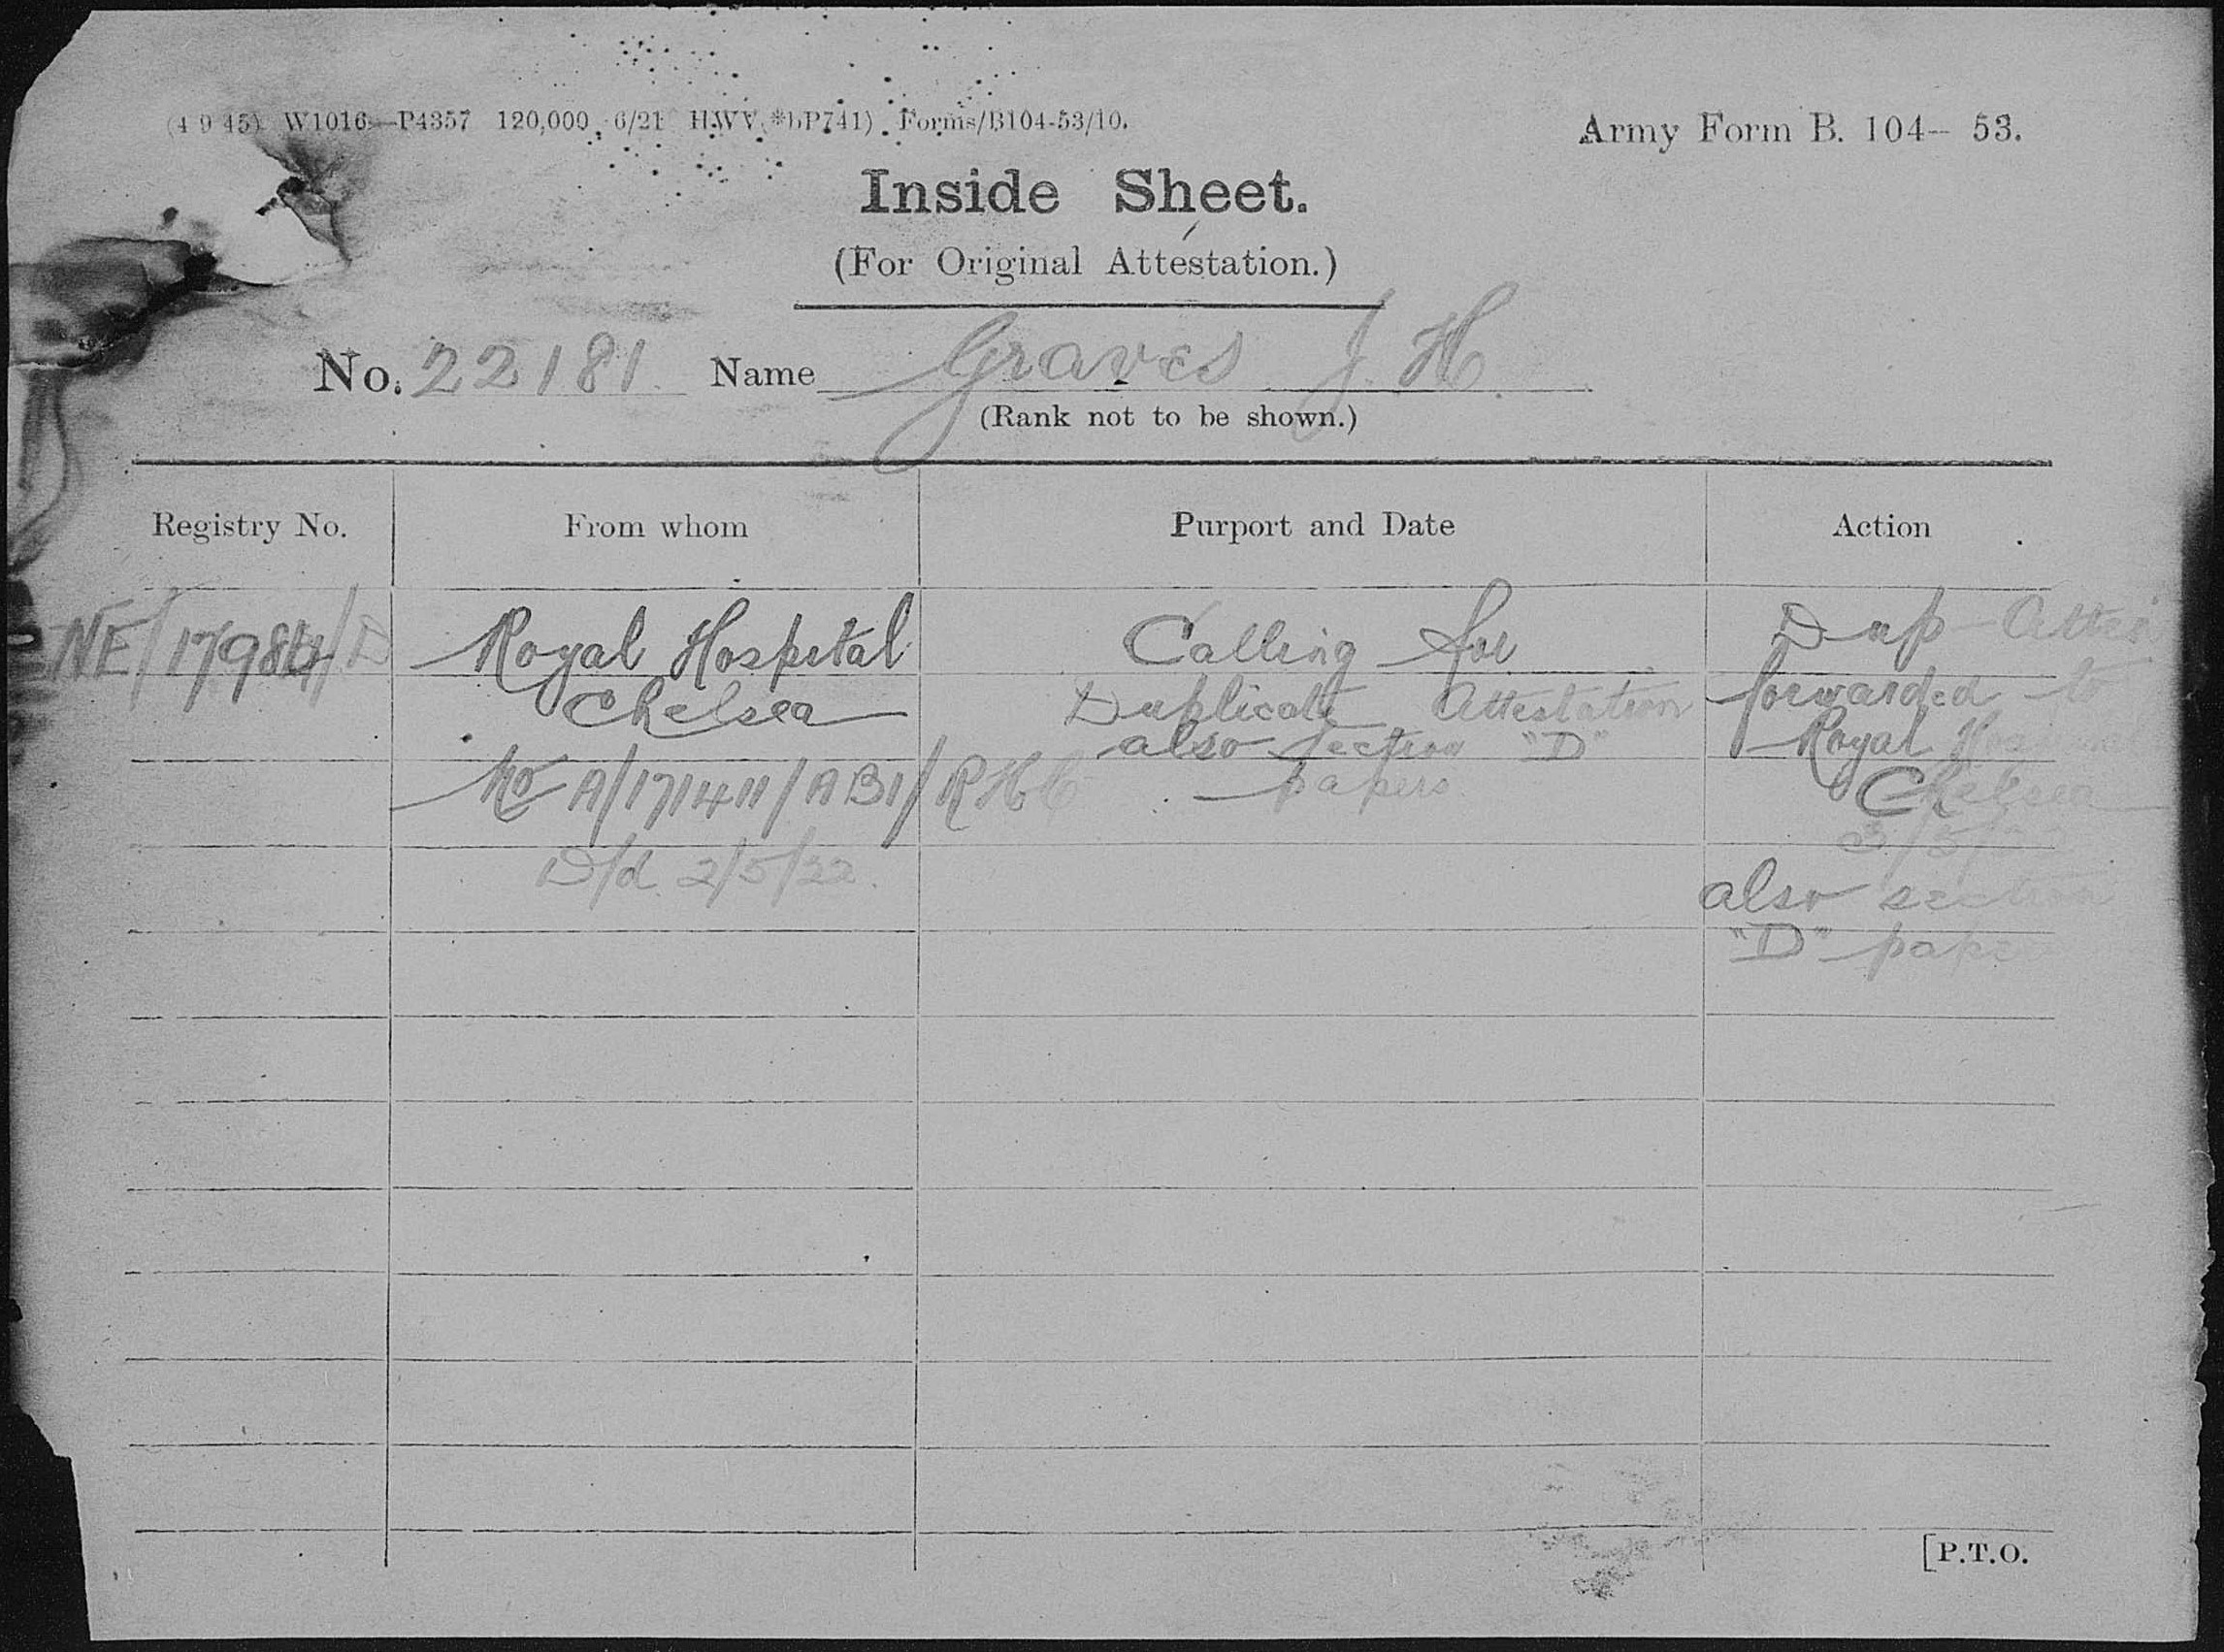 (4 9 45) W1016—P4357 120,000 6/21 HWV Forms/B104-53/10.
Army Form B. 104— 53.
Inside Sheet.
(For Original Attestation.)
No. 22181 Name Graves J. H.
(Rank not to be shown.)
Registry No. From whom Purport and Date Action
NE/17984/D Royal Hospital Calling for Dup
Chelsea Duplicate Attestation forwarded to
also section "D" Royal
No A/171411/AB1/RHC papers Chelsea
D/d 2/5/22.
also section
"D"
[P.T.O.